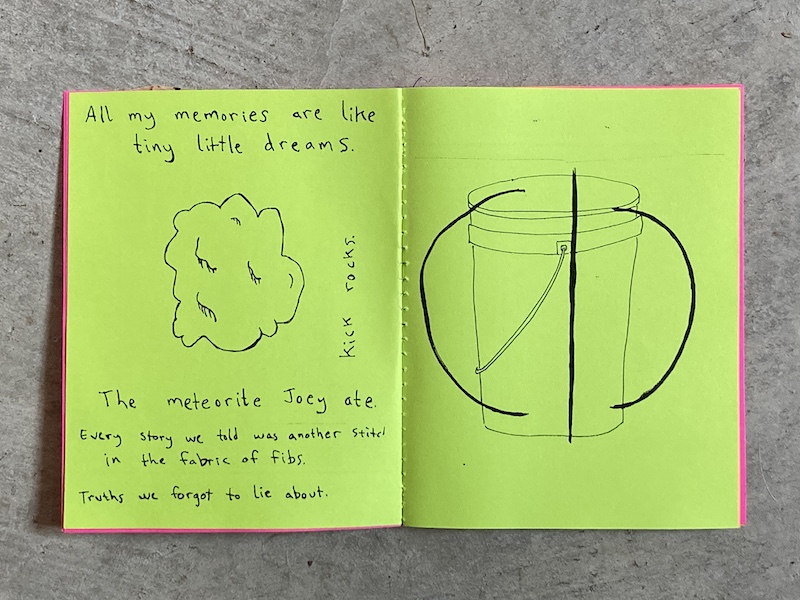 All my memories are like
tiny little dreams.
Kick rocks.
The meteorite Joey ate.
Every story we told was another stitch
in the fabric of fibs.
Truths we forgot to lie about.